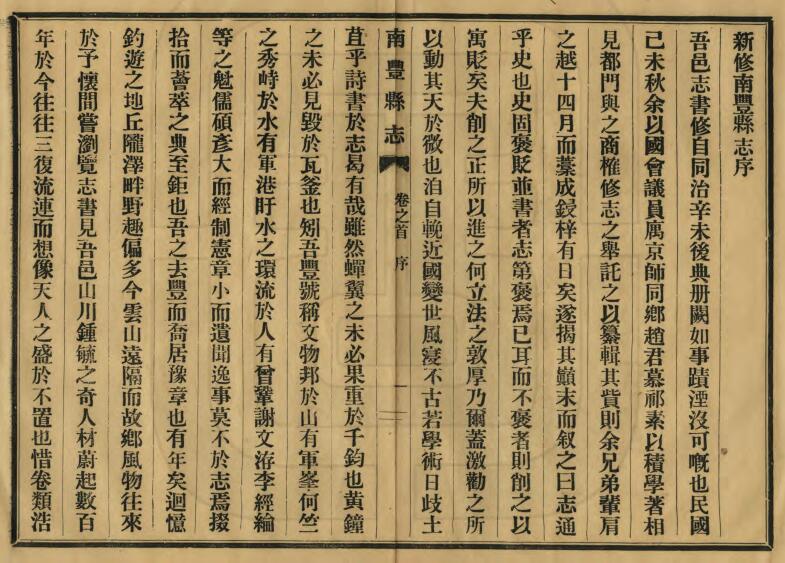 新修南豐縣志序
吾邑志書修自同治辛未後典册闕如事蹟湮沒可嘅也民國
己未秋余以國會議員寓京師同鄉趙君慕祁素以積學著相
見都門與之商榷修志之舉託之以纂輯其貲則余兄弟輩肩
之越十四月而藁成鋟梓有日矣遂揭其巔末而叙之曰志通
乎史也史固褒貶並書者志第褒焉已耳而不褒者則削之以
寓貶矣夫削之正所以進之何立法之敦厚乃爾蓋激勸之所
以動其天於微也洎自輓近國變世風寖不古若學術日歧土
南豐縣志
卷之首 序
一
苴乎詩書於志曷有哉雖然蟬翼之未必果重於千鈞也黃鐘
之未必見毀於瓦釜也矧吾豐號稱文物邦於山有軍峯何竺
之秀峙於水有軍港盱水之環流於人有曾鞏謝文洊李經綸
等之魁儒碩彥大而經制憲章小而遺聞逸事莫不於志焉掇
拾而薈萃之典至鉅也吾之去豐而喬居豫章也有年矣迴憶
釣遊之地丘隴澤畔野趣偏多今雲山遠隔而故鄉風物往來
於予懷間嘗瀏覽志書見吾邑山川鍾毓之奇人材蔚起數百
年於今往往三復流連而想像天人之盛於不置也惜卷類浩